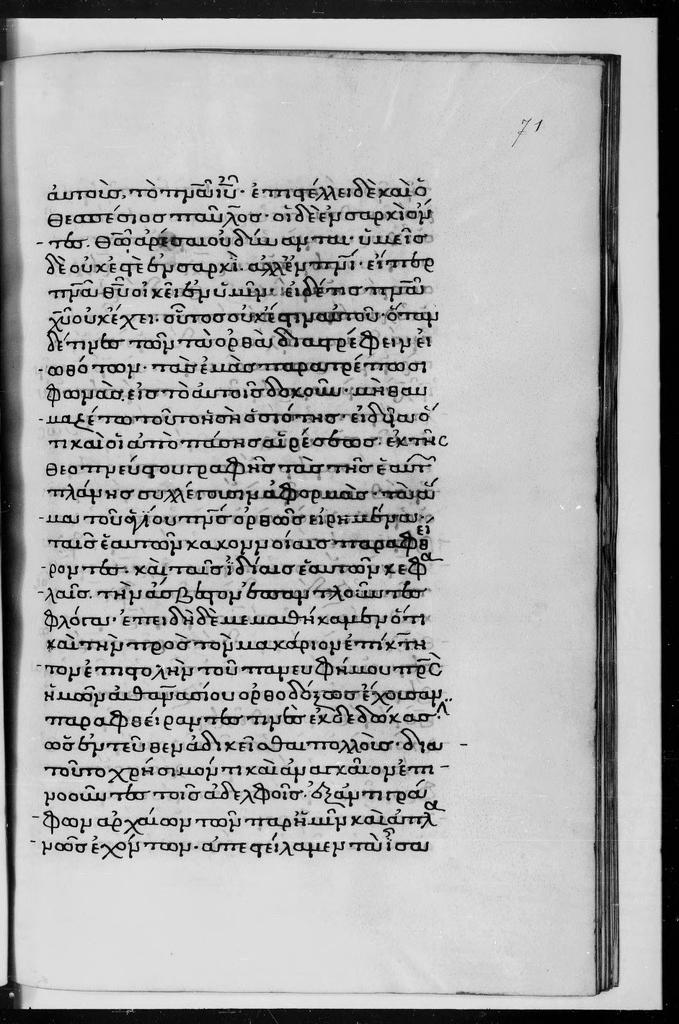 71
αὐτοῖς, τὸ πνᾶ ἰῦ· ἐπιστέλλει δὲ καὶ ὁ
θεσπέσιος παῦλος· οἱ δὲ ἐν σαρκὶ ὄν
τες. θῶ ἀρέσαι οὐ δύνανται· ὑμεῖς
δὲ οὐκ ἐστὲ ἐν σαρκὶ. ἀλλ' ἐν πνΐ· εἴπερ
πνᾶ θῦ οἰκεῖ ἐν ὑμῖν· εἰ δέ τις πνᾶ
χῦ οὐκ ἔχει. οὗτος οὐκ ἔστιν αὐτοῦ· ὅταν
δέ τινες τῶν τὰ ὀρθὰ διαστρέφειν εἰ
ωθότων· τὰς ἐμὰς παρατρέπωσι
φωνὰς, εἰς τὸ αὐτοῖς δοκοῦν· μὴ θαυ
μαζέτω τοῦτο ἡ σὴ ὁσιότης· εἰδυῖα ὅ
τι καὶ οἱ ἀπὸ πάσης αἱρέσεως. ἐκ τῆς
θεοπνεύστου γραφῆς τὰς τῆς ἑαυτῶν
πλάνης συλλέγουσιν ἀφορμὰς· τὰ διὰ
τοῦ ἁγίου πνς ὀρθῶς εἰρημένα·
ταῖς ἑαυτῶν κακονοίαις παραφθεί
ροντες· καὶ ταῖς ἰδίαις ἑαυτῶν κεφα
λαῖς. τὴν ἄσβεστον ἐπαντλοῦντες
φλόγα· ἐπειδὴ δὲ μεμαθήκαμεν ὅτι
καὶ τὴν πρὸς τὸν μακάριον ἐπίκτη
τον ἐπιστολὴν τοῦ πανευφήμου πρς
ἡμῶν ἀθανασίου ὀρθοδόξως ἔχουσαν
παραφθείραντές τινες ἐκδεδώκασιν
ὡς ἐντεῦθεν ἀδικεῖσθαι πολλοὺς· διὰ
τοῦτο χρήσιμόν τι καὶ ἀναγκαῖον ἐπι
νοοῦντες τοῖς ἀδελφοῖς· ἐξ ἀντιγρά
φων ἀρχαίων τῶν παρ' ἡμῖν καὶ ἀπλα
νῶς ἐχόντων· ἀπεστείλαμεν τὰ ἴσα